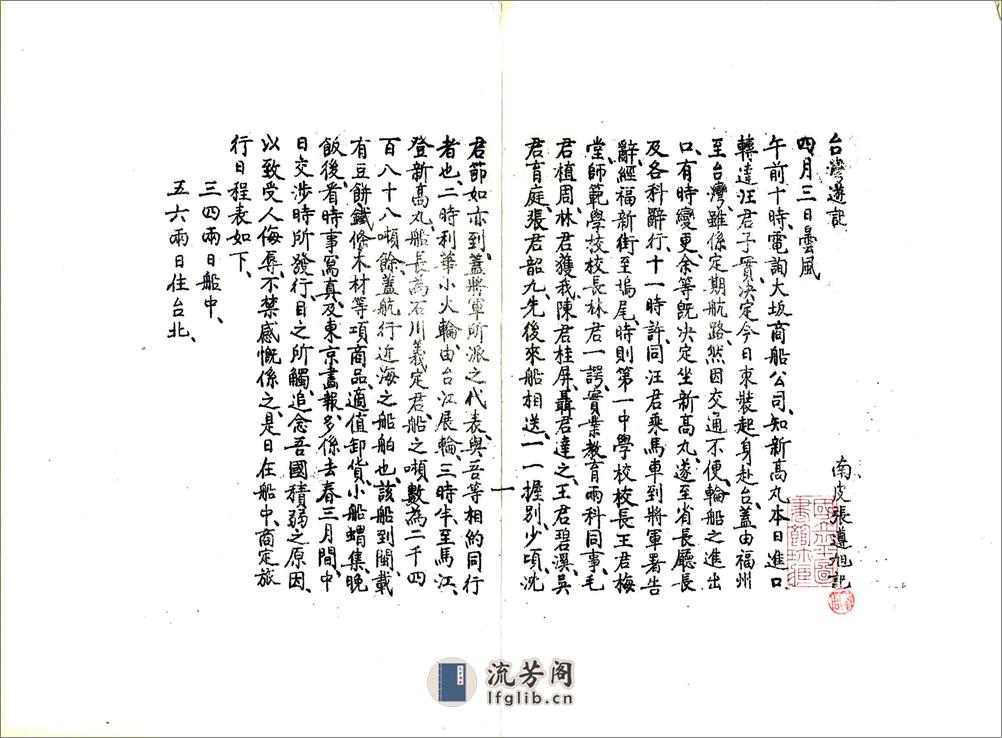 台灣遊記
南皮張遵旭記
四月三日曇風
午前十時電詢大坂商船公司、知新高丸本日進口
轉達汪君子實決定今日束裝起身赴台、蓋由福州
至台灣雖係定期航路、然因交通不便、輪船之進出
口、有時變更、余等既決定坐新高丸、遂至省長廳長
及各科辭行、十一時許同汪君乘馬車到將軍署告
辭、經福新街至塢尾、時則第一中學校校長王君梅
堂、師範學校校長林君一諤、實業教育兩科同事、毛
君植周、林君獲我、陳君桂屏、聶君達之、王君碧溪、吳
君育庭、張君韶九、先後來船相送、一一握別、少頃、沈
一
君節如亦到、蓋將軍所派之代表、與吾等相約同行
者也、二時利華小火輪由台江展輪、三時半至馬江、
登新高丸、船長為石川義定君、船之噸數為二千四
百八十八噸餘、蓋航行近海之船舶也、該船到閩載
有豆餅鐵條木材等項商品、適值卸貨、小船蝟集、晚
飯後、看時事寫真、及東京畫報、多係去春三月間中
日交涉時所發行、目之所觸、追念吾國積弱之原因、
以致受人侮辱、不禁感慨係之、是日住船中、商定旅
行日程表如下、
三四兩日船中、
五六兩日住台北、
流芳阁
lfglib.cn